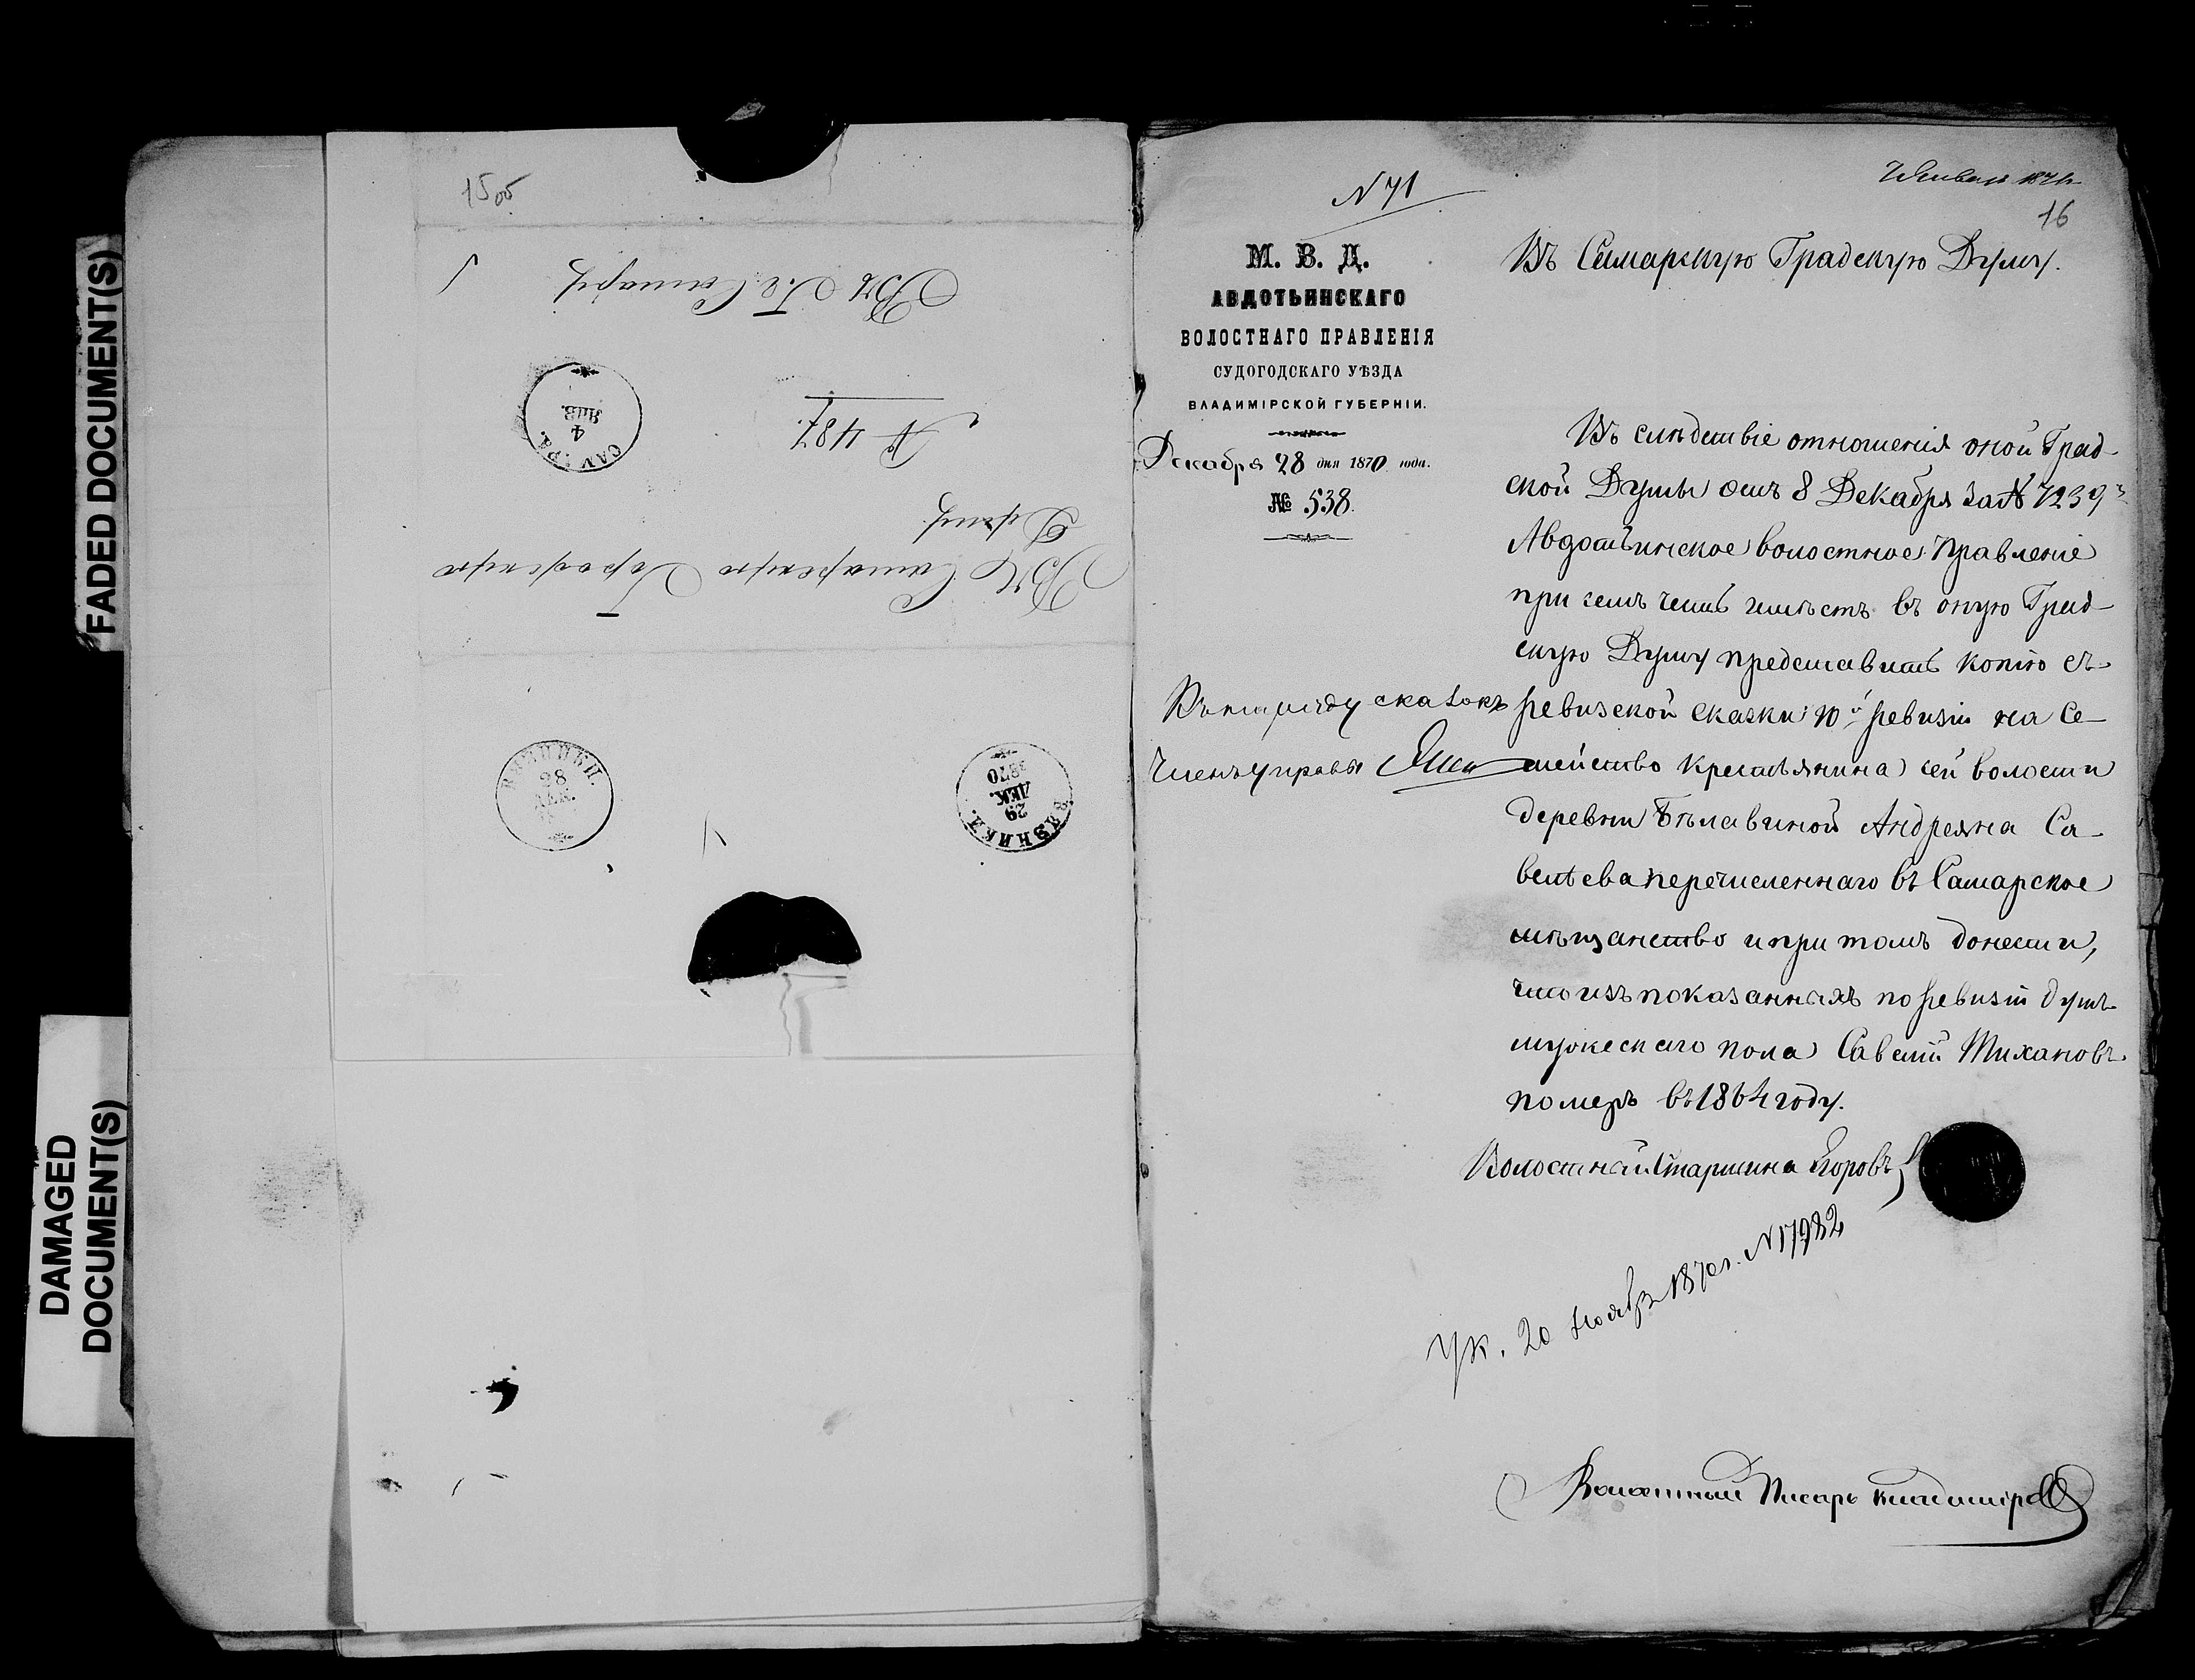 FADED DOCUMENT(S)
DAMAGED
DOCUMENT(S)
15 об
Въ Г. Самару
САМАРА
4
ЯНВ.
№ 487.
Въ Самарскую Городскую
Думу
28
ДЕК.
ВЯЗНИКИ.
29
ДЕК.
1870
N 71
16
М. В. Д.
АВДОТЬИНСКАГО
ВОЛОСТНАГО ПРАВЛЕНІЯ
СУДОГОДСКАГО УѢЗДА
ВЛАДИМІРСКОЙ ГУБЕРНІИ.
Декабря 28 дня 1870 года.
№ 538.
Въ Самарскую Градскую Думу.
Въ слѣдствіе отношенія оной Град-
ской Думы отъ 8 Декабря за № 7239
Авдотьинское волостное Правленіе
при семъ честь имѣетъ въ оную Град-
скую Думу представить копію съ
ревизской сказки 10й ревизіи на Се-
мейство крестьянина сей волости
деревни Бѣлавиной Андреяна Са-
вельева перечисленнаго въ Самарское
мѣщанство и при томъ донести,
что изъ показанныхъ по ревизіи душъ
мужескаго пола Савелій Тихановъ
померъ въ 1864 году.
Къ наряду сказокъ
Членъ управы
Волостной Старшина Егоровъ
Ук. 20 Ноября 1870 г. N 17982
Волостный Писарь Владиміровъ